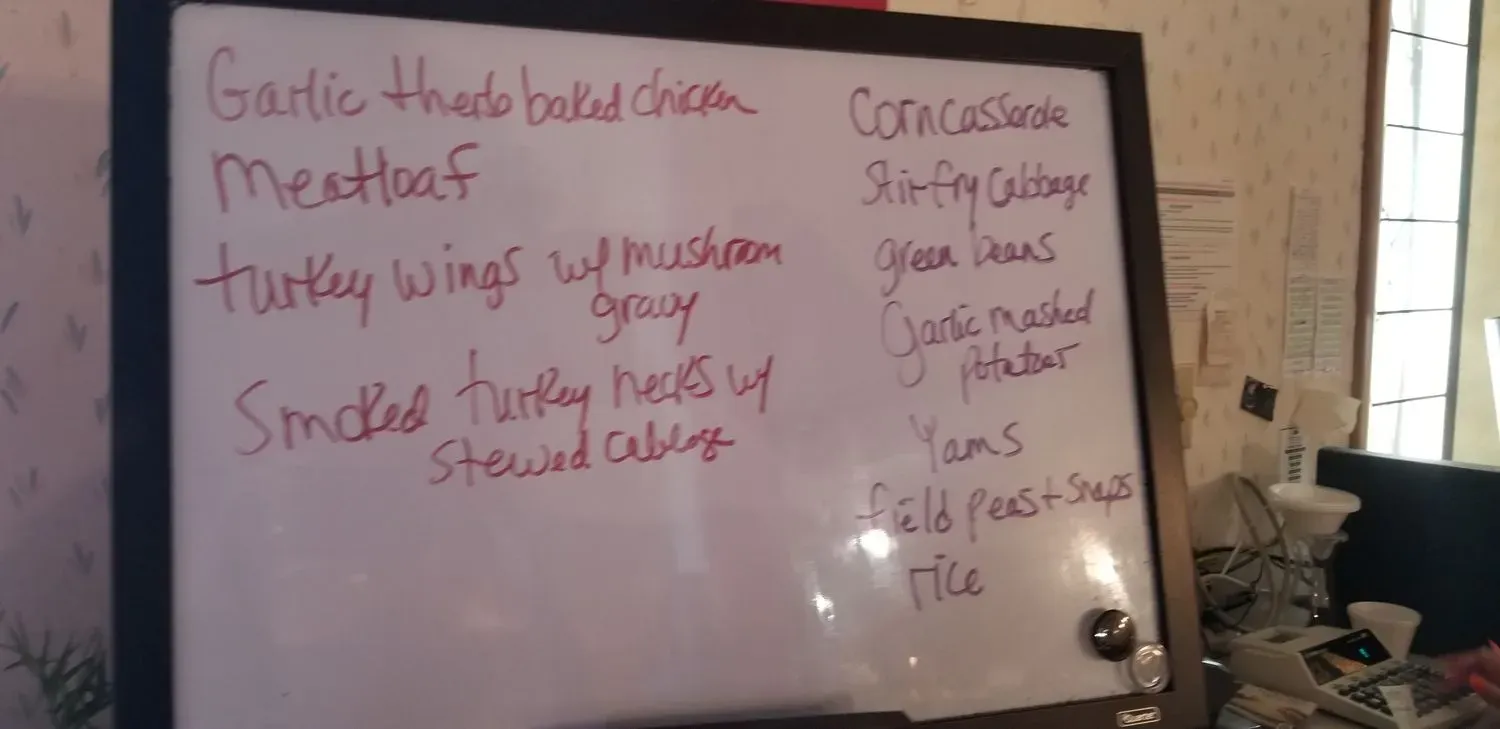 Garlic + herb baked chicken
Meatloaf
turkey wings w/ mushroom
gravy
Smoked turkey necks w/
Stewed cabbage
Corn casserole
Stir fry Cabbage
green beans
Garlic mashed
potatoes
Yams
field peas + snaps
rice
Quartet